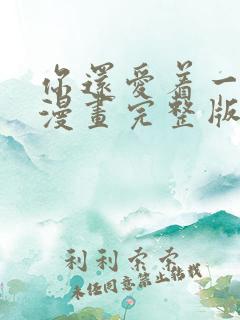 你還愛着一
漫畫完整版
利利索索
未经同意禁止转载